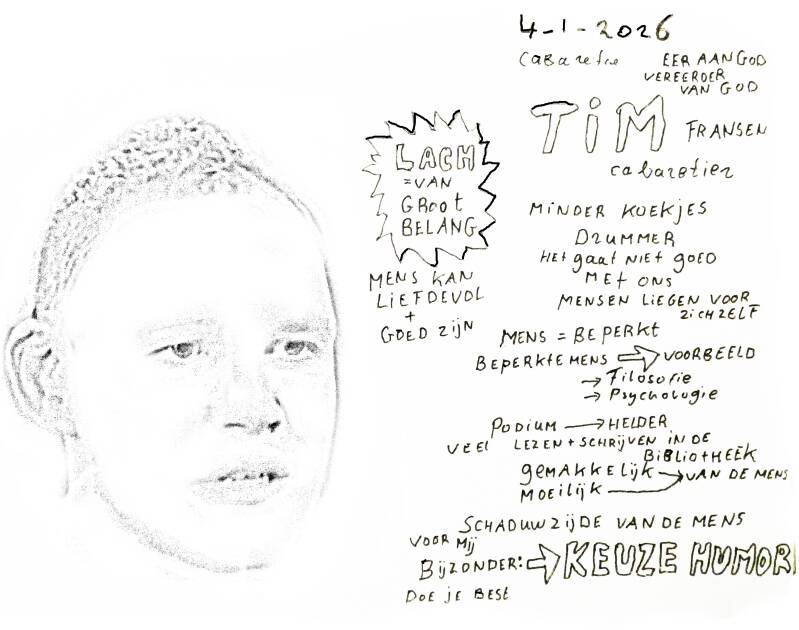 4-1-2026
Cabaretie
EER AAN GOD
VEREERDER
VAN GOD
TiM
FRANSEN
cabaretier
LACH
=VAN
GRoot
BELANG
MENS KAN
LiEFDEVOL
+
GOED ZijN
MiNDER KOEKJES
DRUMMER
HEt gaat NiEt goED
MEt ONS
MENSEN LiEGEN VOOR
ZiCHZELF
MENS = BEPERKt
BEPERKtE MENS → VOORBEELD
→ Filosofie
→ Psychologie
PODiUM → HELDER
VEEL LEZEN + SCHRijVEN iN DE
BiBLiOtHEEK
gEMAKKELijK → VAN DE MENS
MOEiLijK
SCHADUWZijDE VAN DE MENS
VOOR Mij
BijZONDER: → KEUZE HUMOR
DOE jE BESt